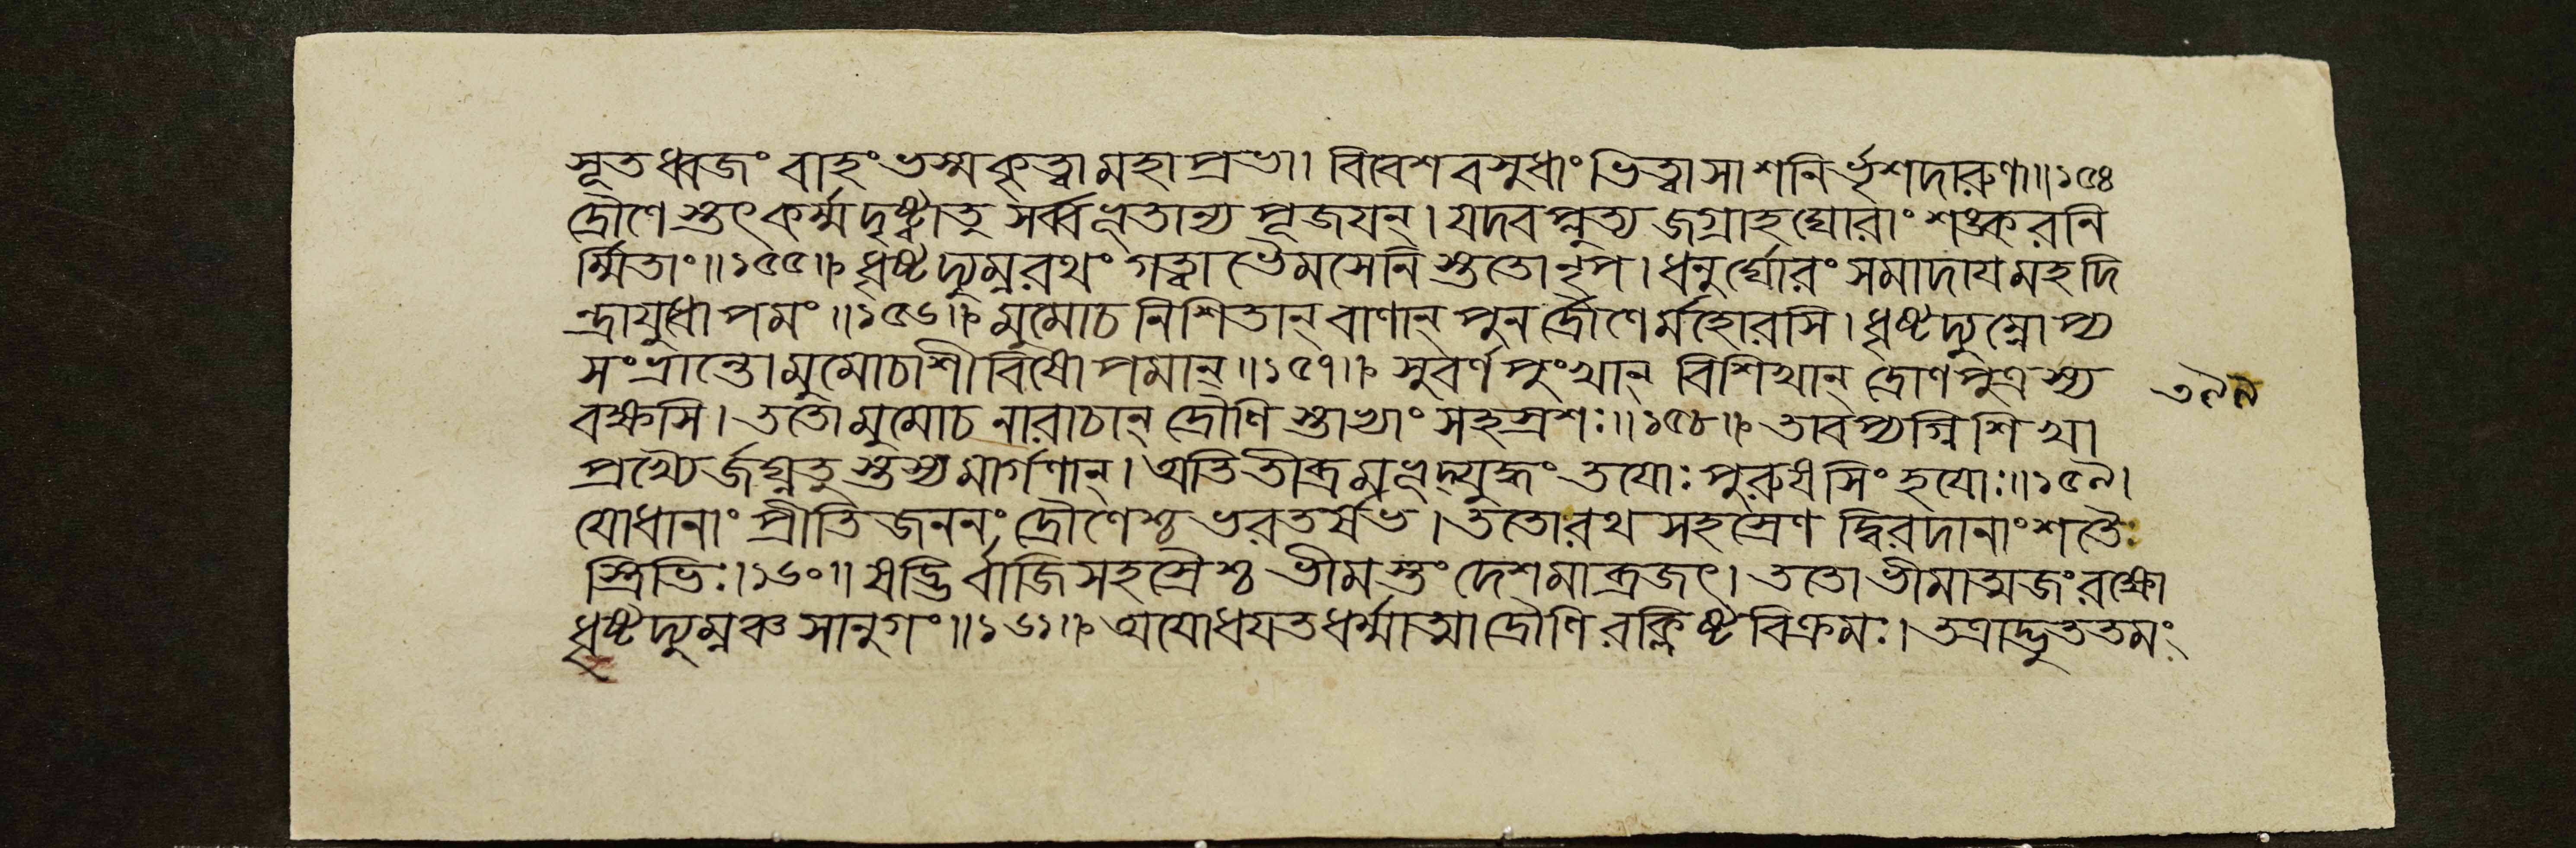 সূতধ্বজং বাহং ভস্মকৃত্বামহাপ্রভা। বিবেশবসুধাং ভিত্বাসাশনির্ভৃশদারুণা॥১৫৪
দ্রৌণেস্তৎকর্ম্মদৃষ্ট্বাতু সর্ব্বভূতান্যপূজযন্। যদবপ্লুত্যজগ্রাহঘোরাং শঙ্করনি
র্ম্মিতাং॥১৫৫॥ ধৃষ্টদ্যুম্নরথং গত্বা ভৈমসেনিস্ততোনৃপ। ধনুর্ঘোরং সমাদাযমহদি
ন্দ্রাযুধোপমং॥১৫৬॥ মুমোচ নিশিতান্ বাণান্ পুনর্দ্রৌণের্মহোরসি। ধৃষ্টদ্যুম্নোপ্য
সংভ্রান্তোমুমোচাশীবিষোপমান্॥১৫৭॥ সুবর্ণপুংখান্ বিশিখান্ দ্রোণপুত্রস্য
বক্ষসি। ততোমুমোচ নারাচান্ দ্রৌণিস্তাভ্যাং সহস্রশঃ॥১৫৮॥ তাবপ্যগ্নিশিখা
প্রখ্যৈর্জঘ্নতুস্তস্যমার্গণান্। অতিতীব্রমভূদ্যুদ্ধং তযোঃ পুরুষসিংহযোঃ॥১৫৯।
যোধানাং প্রীতিজননং দ্রৌণেশ্চ ভরতর্ষভ। ততোরথসহস্রেণ দ্বিরদানাং শতৈঃ
স্ত্রিভিঃ।১৬০॥ ষড্ভির্বাজিসহস্রৈশ্চ ভীমস্তং দেশমাব্রজৎ। ততোভীমাত্মজং রক্ষো
ধৃষ্টদ্যুম্নঞ্চসানুগং॥১৬১॥ অযোধযতধর্ম্মাত্মাদ্রৌণিরক্লিষ্টবিক্রমঃ। তত্রাদ্ভুততমং